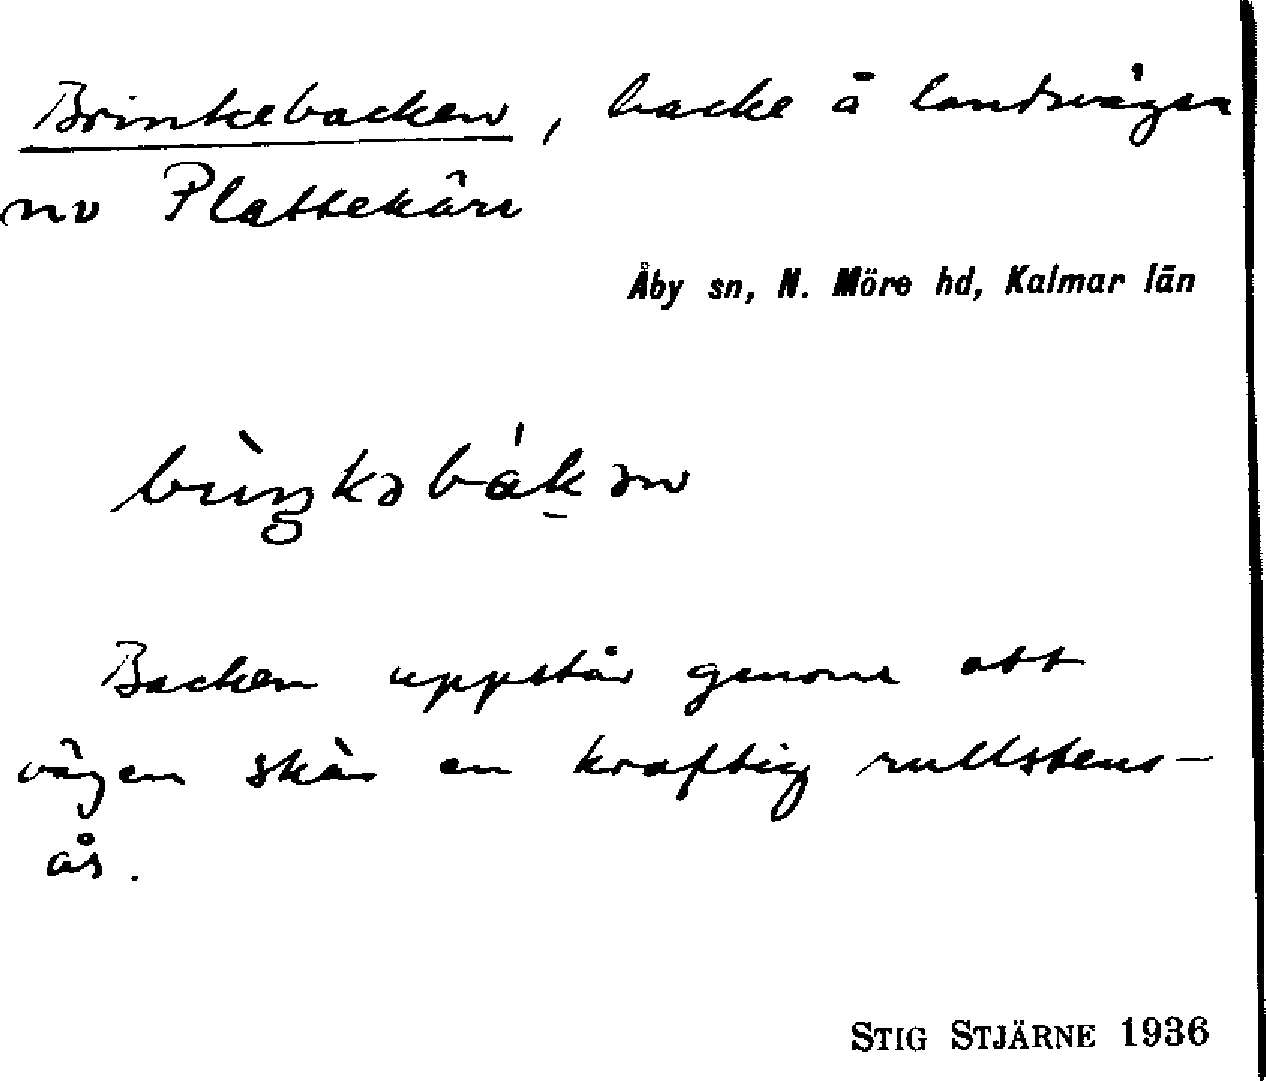 Brinkebacken, backe å landsvägen
nv Plattekärr
Åby sn, N. Möre hd, Kalmar län
Backen uppstår genom att
vägen skär en kraftig rullstens-
ås.
STIG STJÄRNE 1936